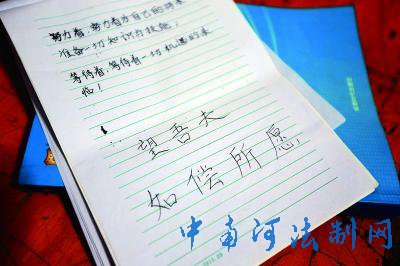 努力着,努力着为自己的将来
准备一切知识与技能!
等待着,等待着一切机遇的来
临!
望吾夫
如偿所愿
中南河法制网